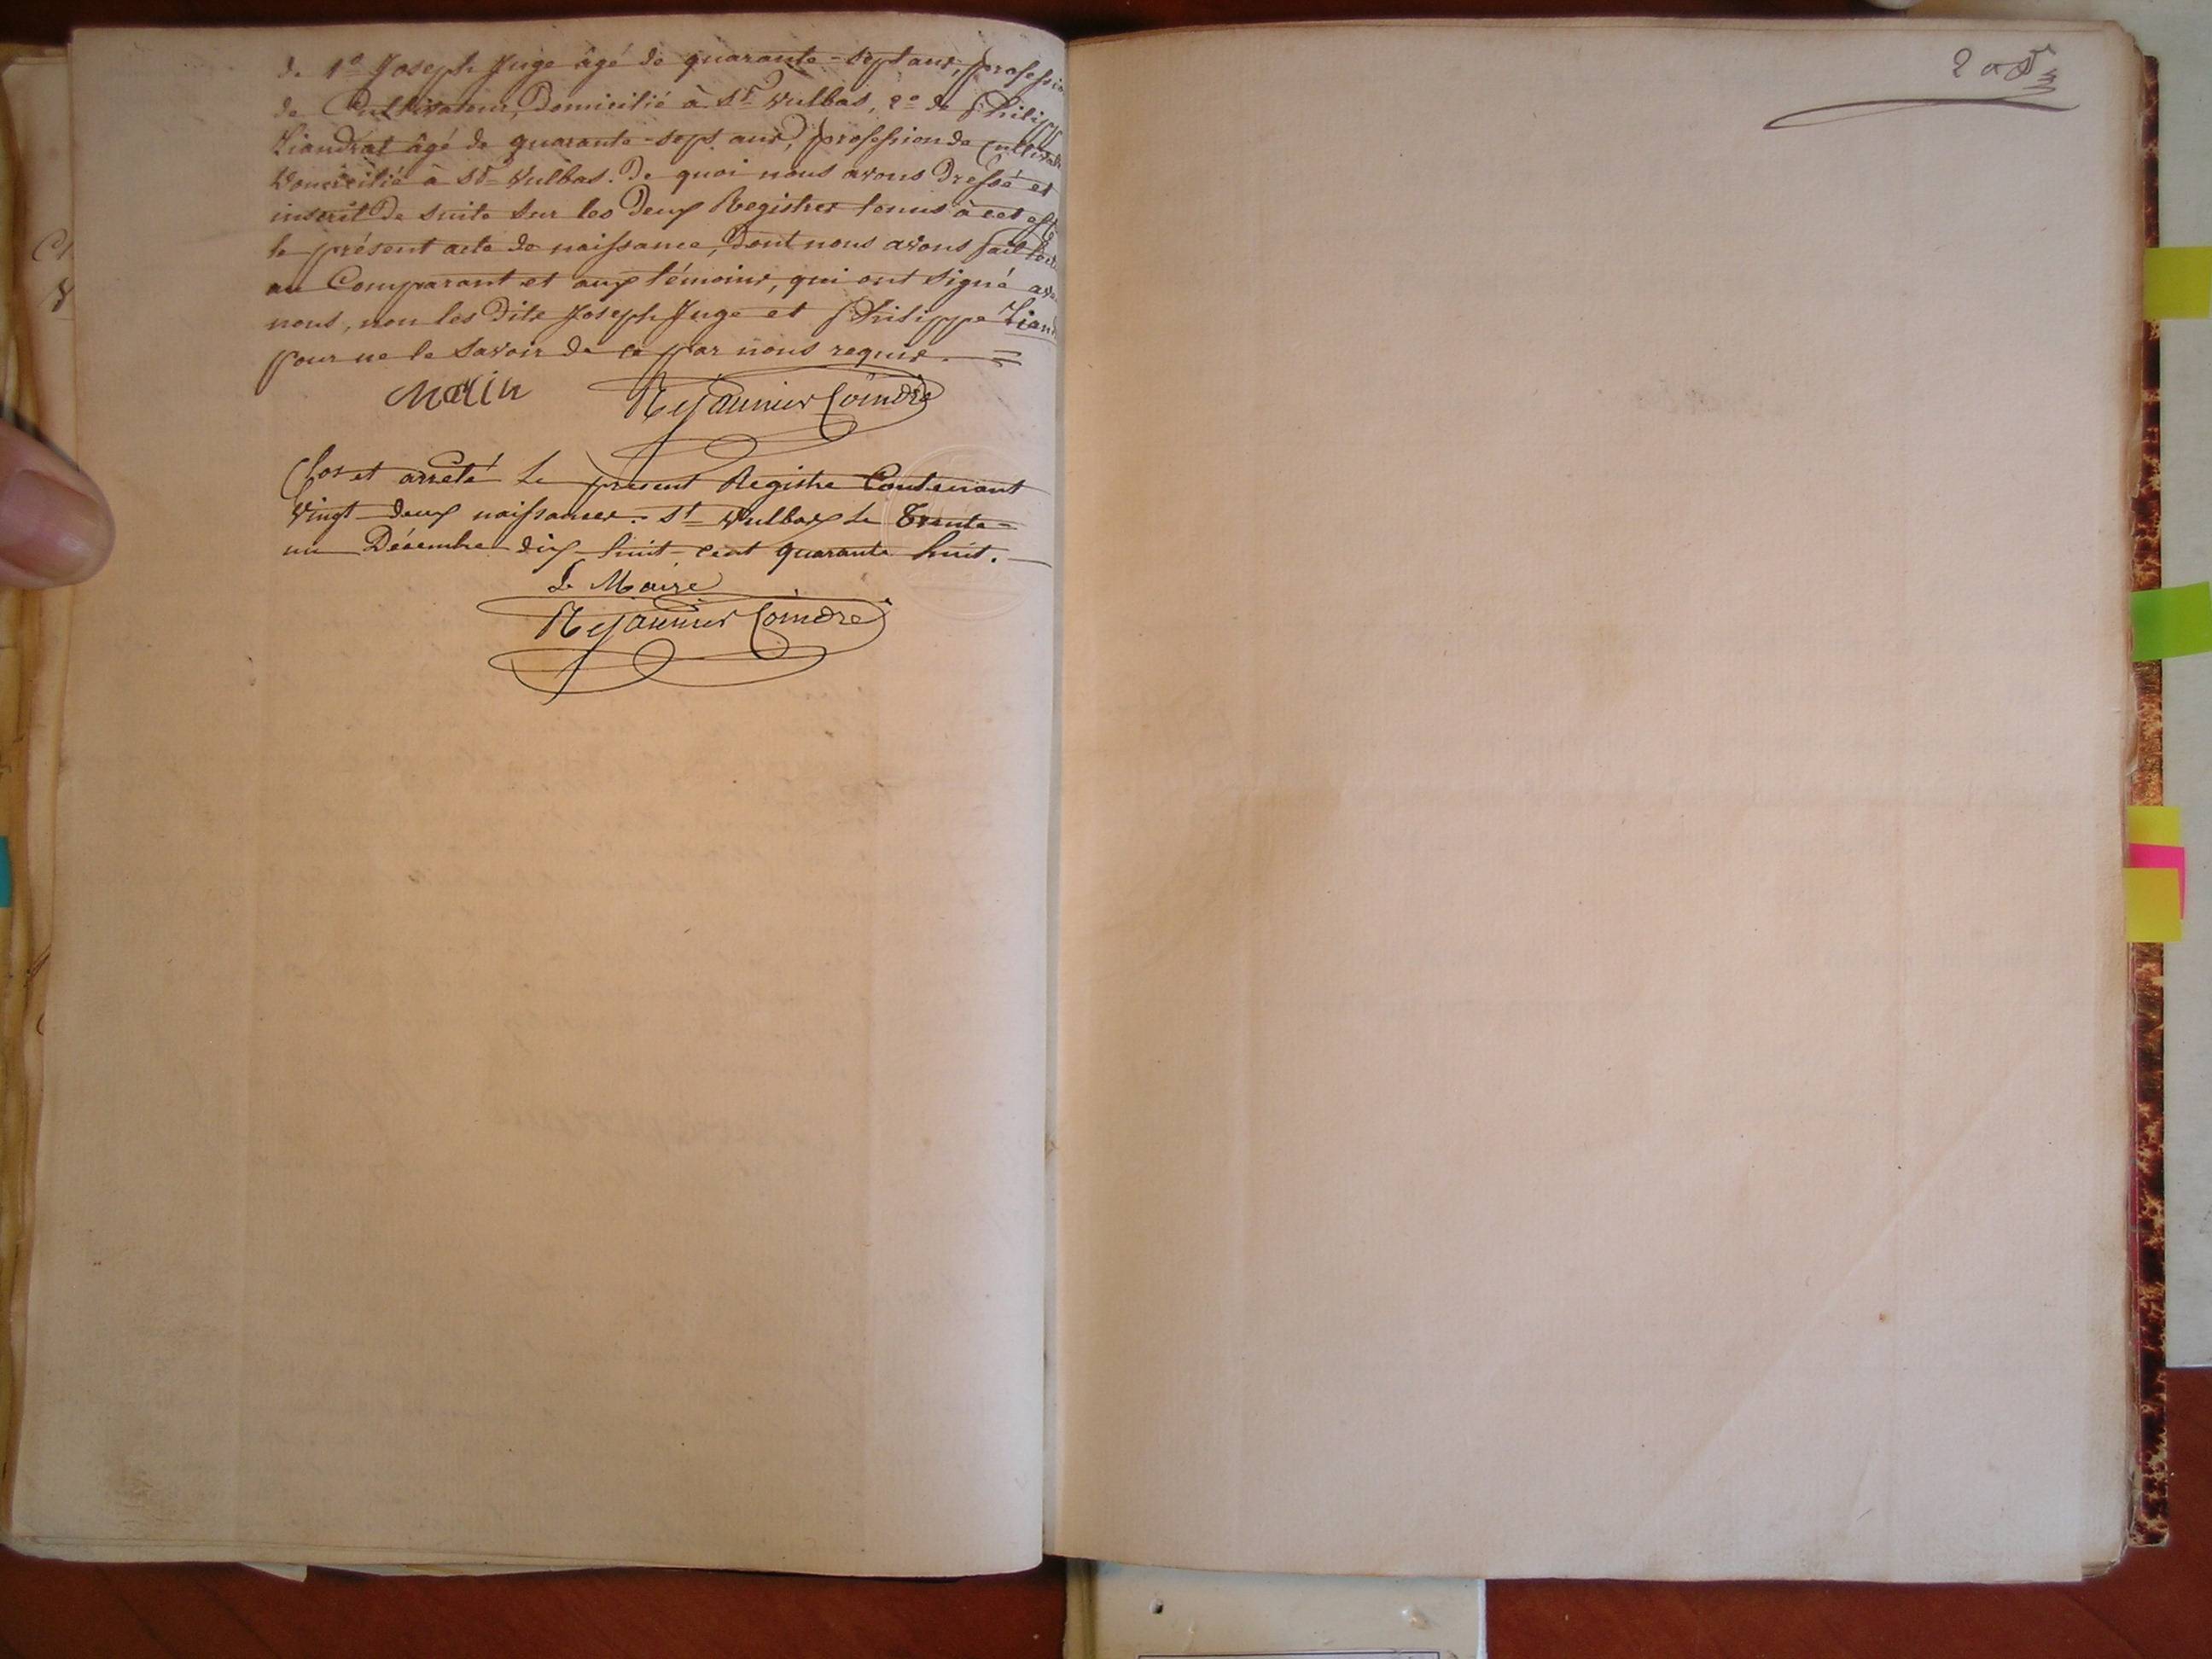 de 1º Joseph Juge âgé de quarante-sept ans, profession
de Cultivateur, Domicilié à St Vulbas, 2º de Philippe
Liandrat âgé de quarante-sept ans, profession de
Domicilié à St Vulbas. De quoi nous avons Dressé et
inscrit De suite Sur les Deux Registres tenus à cet
le présent acte de naissance, Dont nous avons fait
au Comparant et aux témoins, qui ont Signé
nous, non les Dits Joseph Juge et Philippe
pour ne le Savoir de ce par nous requis.
Rejannier Coindre
Clos et arrêté Le présent Registre Contenant
Vingt-deux naissances. St Vulbas Le Trente-
un Décembre dix-huit-cent quarante huit.
Le Maire
Rejannier Coindre